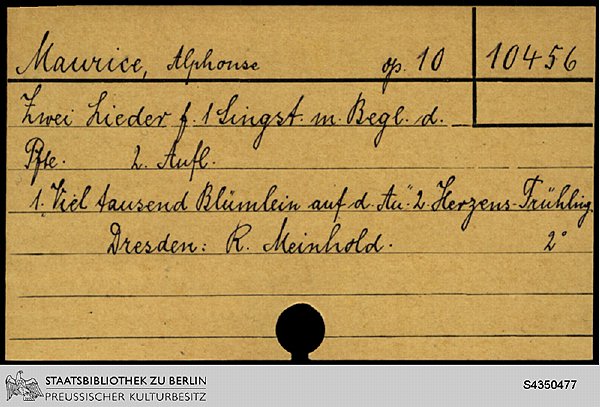 Maurice, Alphonse op. 10 10456
Zwei Lieder f. 1 Singst. m. Begl. d.
Pfte. 2. Aufl.
1. "Viel tausend Blümlein auf d. Au". 2. Herzens-Frühling.
Dresden: R. Meinhold. 2°
STAATSBIBLIOTHEK ZU BERLIN
PREUSSISCHER KULTURBESITZ
S4350477